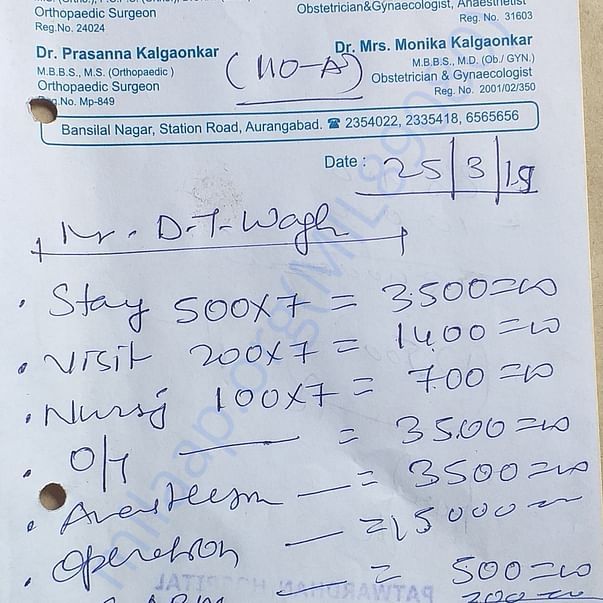 M.S. (Ortho.), F.C.P.S. (Ortho.),
Orthopaedic Surgeon
Reg.No. 24024
Obstetrician&Gynaecologist, Anaesthetist
Reg. No. 31603
Dr. Prasanna Kalgaonkar
M.B.B.S., M.S. (Orthopaedic )
Orthopaedic Surgeon
Reg.No. Mp-849
(110-A)
Dr. Mrs. Monika Kalgaonkar
M.B.B.S., M.D. (Ob./ GYN.)
Obstetrician & Gynaecologist
Reg. No. 2001/02/350
Bansilal Nagar, Station Road, Aurangabad. ☎ 2354022, 2335418, 6565656
Date : 25/3/19
Mr. D.T. Wagh
• Stay 500x7 = 3500=00
• Visit 200x7 = 1400=00
• Nursg 100x7 = 700=00
• O/T — = 3500=00
• Anesthesia — = 3500=00
• Operation — = 15000=00
— = 500=00
200=00
milaap.org/MIL89001
PATWARDHAN HOSPITAL